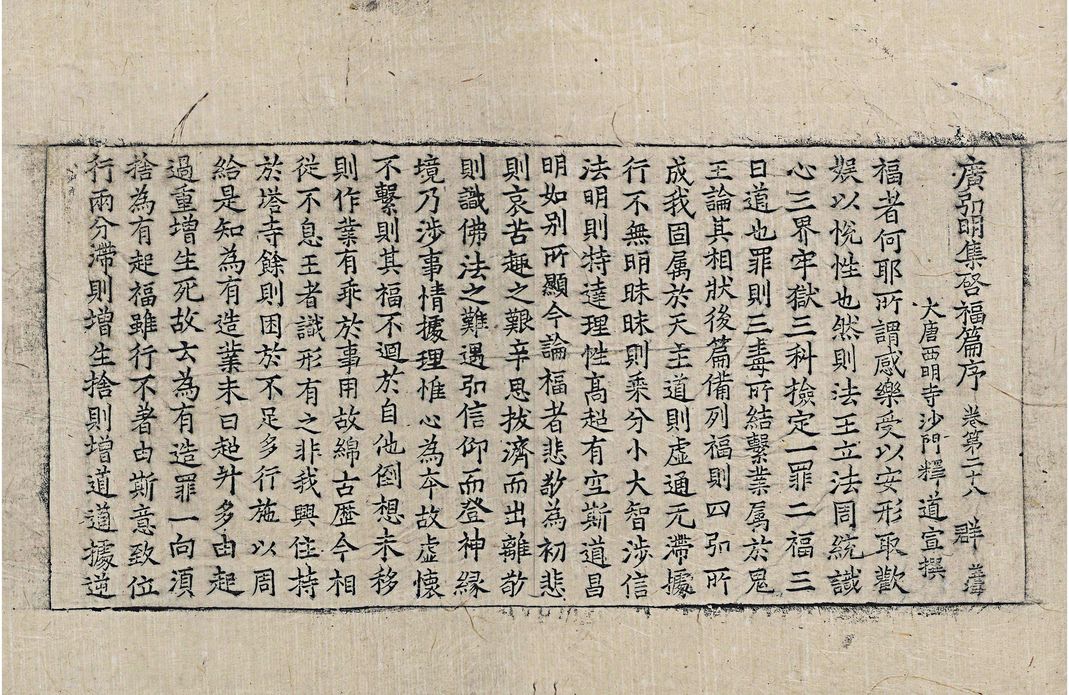 廣弘明集啓福篇序 卷第二十八 群
大唐西明寺沙門釋道宣撰
福者何耶所謂感樂受以安形取歡
娱以悅性也然則法王立法周統識
心三界牢獄三科撿定一罪二福三
曰道也罪則三毒所結繫業属於鬼
王論其相狀後篇備列福則四弘所
成我固属於天主道則虛通无滯據
行不無明昧昧則乘分小大智涉信
法明則特達理性髙起有空斯道昌
明如别所顯今論福者悲敬為初悲
則哀苦趣之艱辛思拔濟而出離敬
則識佛法之難遇弘信仰而登神縁
境乃涉事情據理惟心為本故虛懷
不繫則其福不迴於自他倒想未移
則作業有乖於事用故綿古歷今相
從不息王者識形有之非我興住持
於塔寺餘則困於不足多行施以周
給是知為有造業未曰超升多由起
過重增生死故云為有造罪一向須
捨為有起福雖行不著由斯意致位
行兩分滯則增生捨則增道道據逆